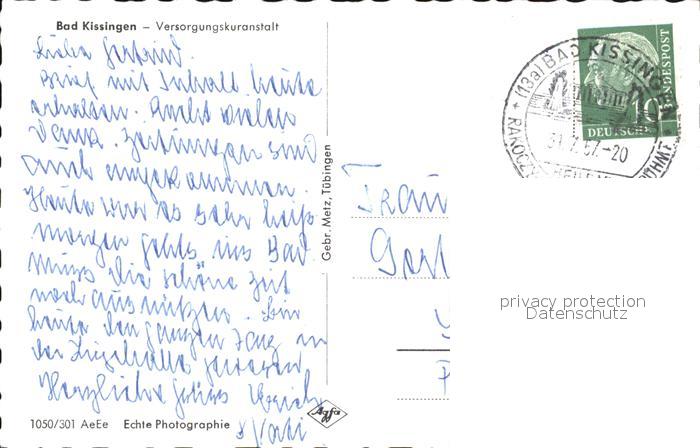 Bad Kissingen – Versorgungskuranstalt
Liebe Gertrud.
Brief mit Inhalt heute
erhalten. Recht vielen
Dank. Zeitungen sind
auch angekommen.
Heute war es sehr heiß
morgen gehts ins Bad.
Muss die schöne Zeit
noch ausnützen. Bin
heute den ganzen Tag in
der Liegehalle gewesen
Herzliche Grüsse
Vati
1050/301 AeEe Echte Photographie
Agfa
Gebr. Metz, Tübingen
(13a) BAD KISSINGEN
RAKOCZY HEIL
57.-20
DEUTSCHE BUNDESPOST
10
Frau
privacy protection
Datenschutz